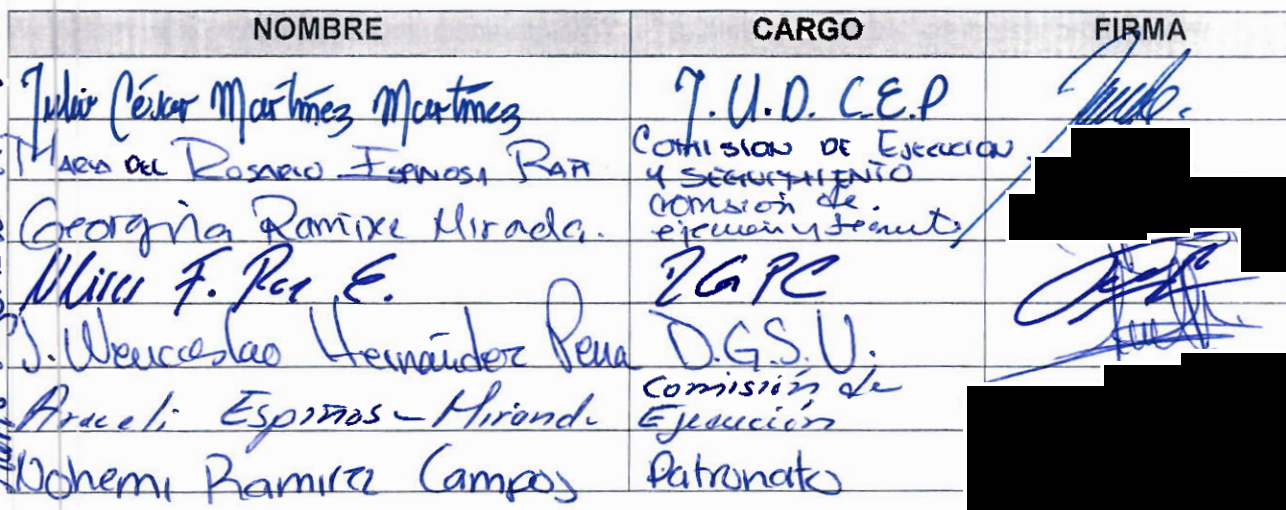 NOMBRE CARGO FIRMA
Julio César Martínez Martínez J.U.D. C.E.P
María del Rosario Espinosa COMISION DE EJECUCION
Y SEGUIMIENTO
Georgina Ramirez Mirada. comsión de.
ejecución y
F. E.
J. Wenceslao Hernández Pena D.G.S.U.
Araceli Espinos Mirand. Comisión de
Ejecución
Nohemi Ramirez Campos Patronato